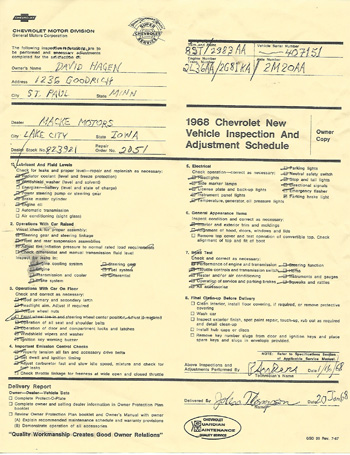 CHEVROLET
CHEVROLET MOTOR DIVISION
General Motors Corporation
SUPER
CHEVROLET
SERVICE
The following inspections are to
be performed and necessary adjustments
completed for the satisfaction of:
Owner's Name DAVID HAGEN
Address 1236 GOODRICH
City ST. PAUL State MINN
Vehicle Serial Number
407151
Engine Number
2M20AA
Dealer MACKE MOTORS
City LAKE CITY State IOWA
Dealer Stock No. 823921 Repair Order No. 2051
1968 Chevrolet New
Vehicle Inspection And
Adjustment Schedule
Owner
Copy
1. Lubricant And Fluid Levels
Check for leaks and proper level—repair and replenish as necessary:
Radiator coolant (level and freeze protection)
Windshield washer (level and solvent)
Energizer—battery (level and state of charge)
Power steering pump or steering gear
Brake master cylinder
Engine oil
Automatic transmission
Air conditioning (sight glass)
2. Operations With Car Raised
Visual check for proper assembly:
Steering gear and steering linkage
Front and rear suspension assemblies
Adjust tire inflation pressure to normal rated load requirements
Inspect for leaks in:
Engine cooling system
Steering gear
Engine
Fuel system
Transmission and cooler
Brake system
3. Operations With Car On Floor
Check and correct as necessary:
Hood primary and secondary latch
Headlight aim. Adjust if required
Torque wheel nuts
Operation of all seat and shoulder belts
Operation of door and compartment locks and latches
Windshield wipers and washer
Ignition key warning buzzer
4. Important Emission Control Checks
Properly tension all fan and accessory drive belts
Set dwell and ignition timing
Adjust carburetor fast and slow idle speed, mixture and check for fuel leaks
Check throttle linkage for freeness at wide open and closed throttle
5. Electrical
Check operation—correct as necessary:
Headlights
Parking lights
Neutral safety switch
Side marker lamps
Stop and tail lights
License plate and back-up lights
Directional signals
Instrument panel lights
Emergency flasher
Temperature, generator, oil pressure lights
Parking brake light
6. General Appearance Items
Inspect condition and correct as necessary:
Interior and exterior trim and moldings
Alignment of hood, doors, windows and lids
Remove top cover and test operation of convertible top. Check alignment of top and fit of boot
7. Road Test
Check and correct as necessary:
Performance of engine and transmission
Steering function
Throttle controls and transmission switch
Horn
Heater and/or air conditioning
Instruments and gauges
Operating of service and parking brakes
Squeaks and rattles
Air conditioner
8. Final Clean-up Before Delivery
Clean interior, install floor covering, if required, or remove protective covering
Wash car
Inspect exterior finish, spot paint repair, touch-up, rub out as required and detail clean-up
Install hub caps or discs
Remove key number slugs from door and ignition keys and place spare keys and slugs in envelope provided.
NOTE: Refer to Specifications Section of Applicable Service Manual
Above Inspections and
Adjustments Performed By
Technician's Name
Date
Delivery Report
Owner—Dealer—Vehicle Data
Complete Protect-O-Plate
Complete owner and selling dealer information in Owner Protection Plan booklet
Review Owner Protection Plan booklet and Owner's Manual with owner
(A) Explain recommended maintenance schedule and warranty provisions
(B) Demonstrate operation of all accessories
"Quality Workmanship Creates Good Owner Relations"
CHEVROLET
GUARDIAN
MAINTENANCE
QUALITY SERVICE
Delivered By John Thompson Date 20 Jan 68